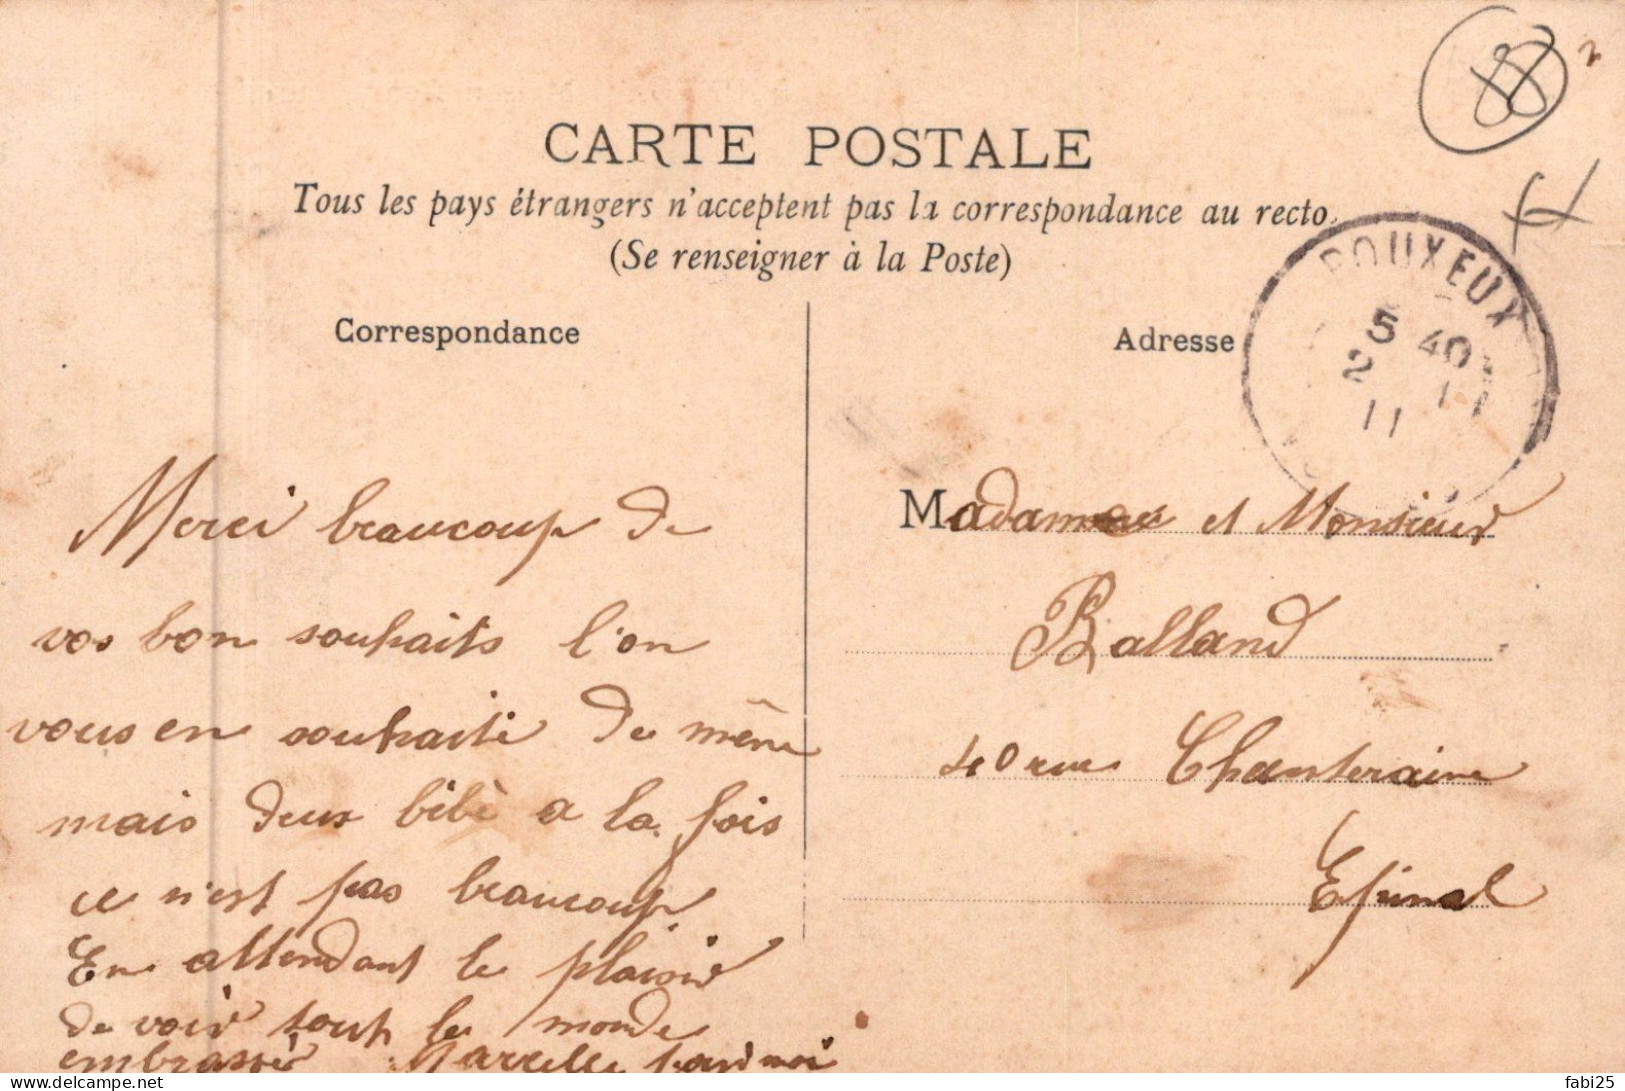 CARTE POSTALE
Tous les pays étrangers n'acceptent pas la correspondance au recto.
(Se renseigner à la Poste)
Correspondance
Adresse
POUXEUX
5 40
2 1
11
Merci beaucoup de
vos bon souhaits l'on
vous en souhaite de même
mais deux bibè a la fois
ce n'est pas beaucoup
En attendant le plaisir
de voir tout le monde
embrassé Marcelle pour moi
Madame et Monsieur
Balland
40 rue Chanteraine
Epinal
fabi25